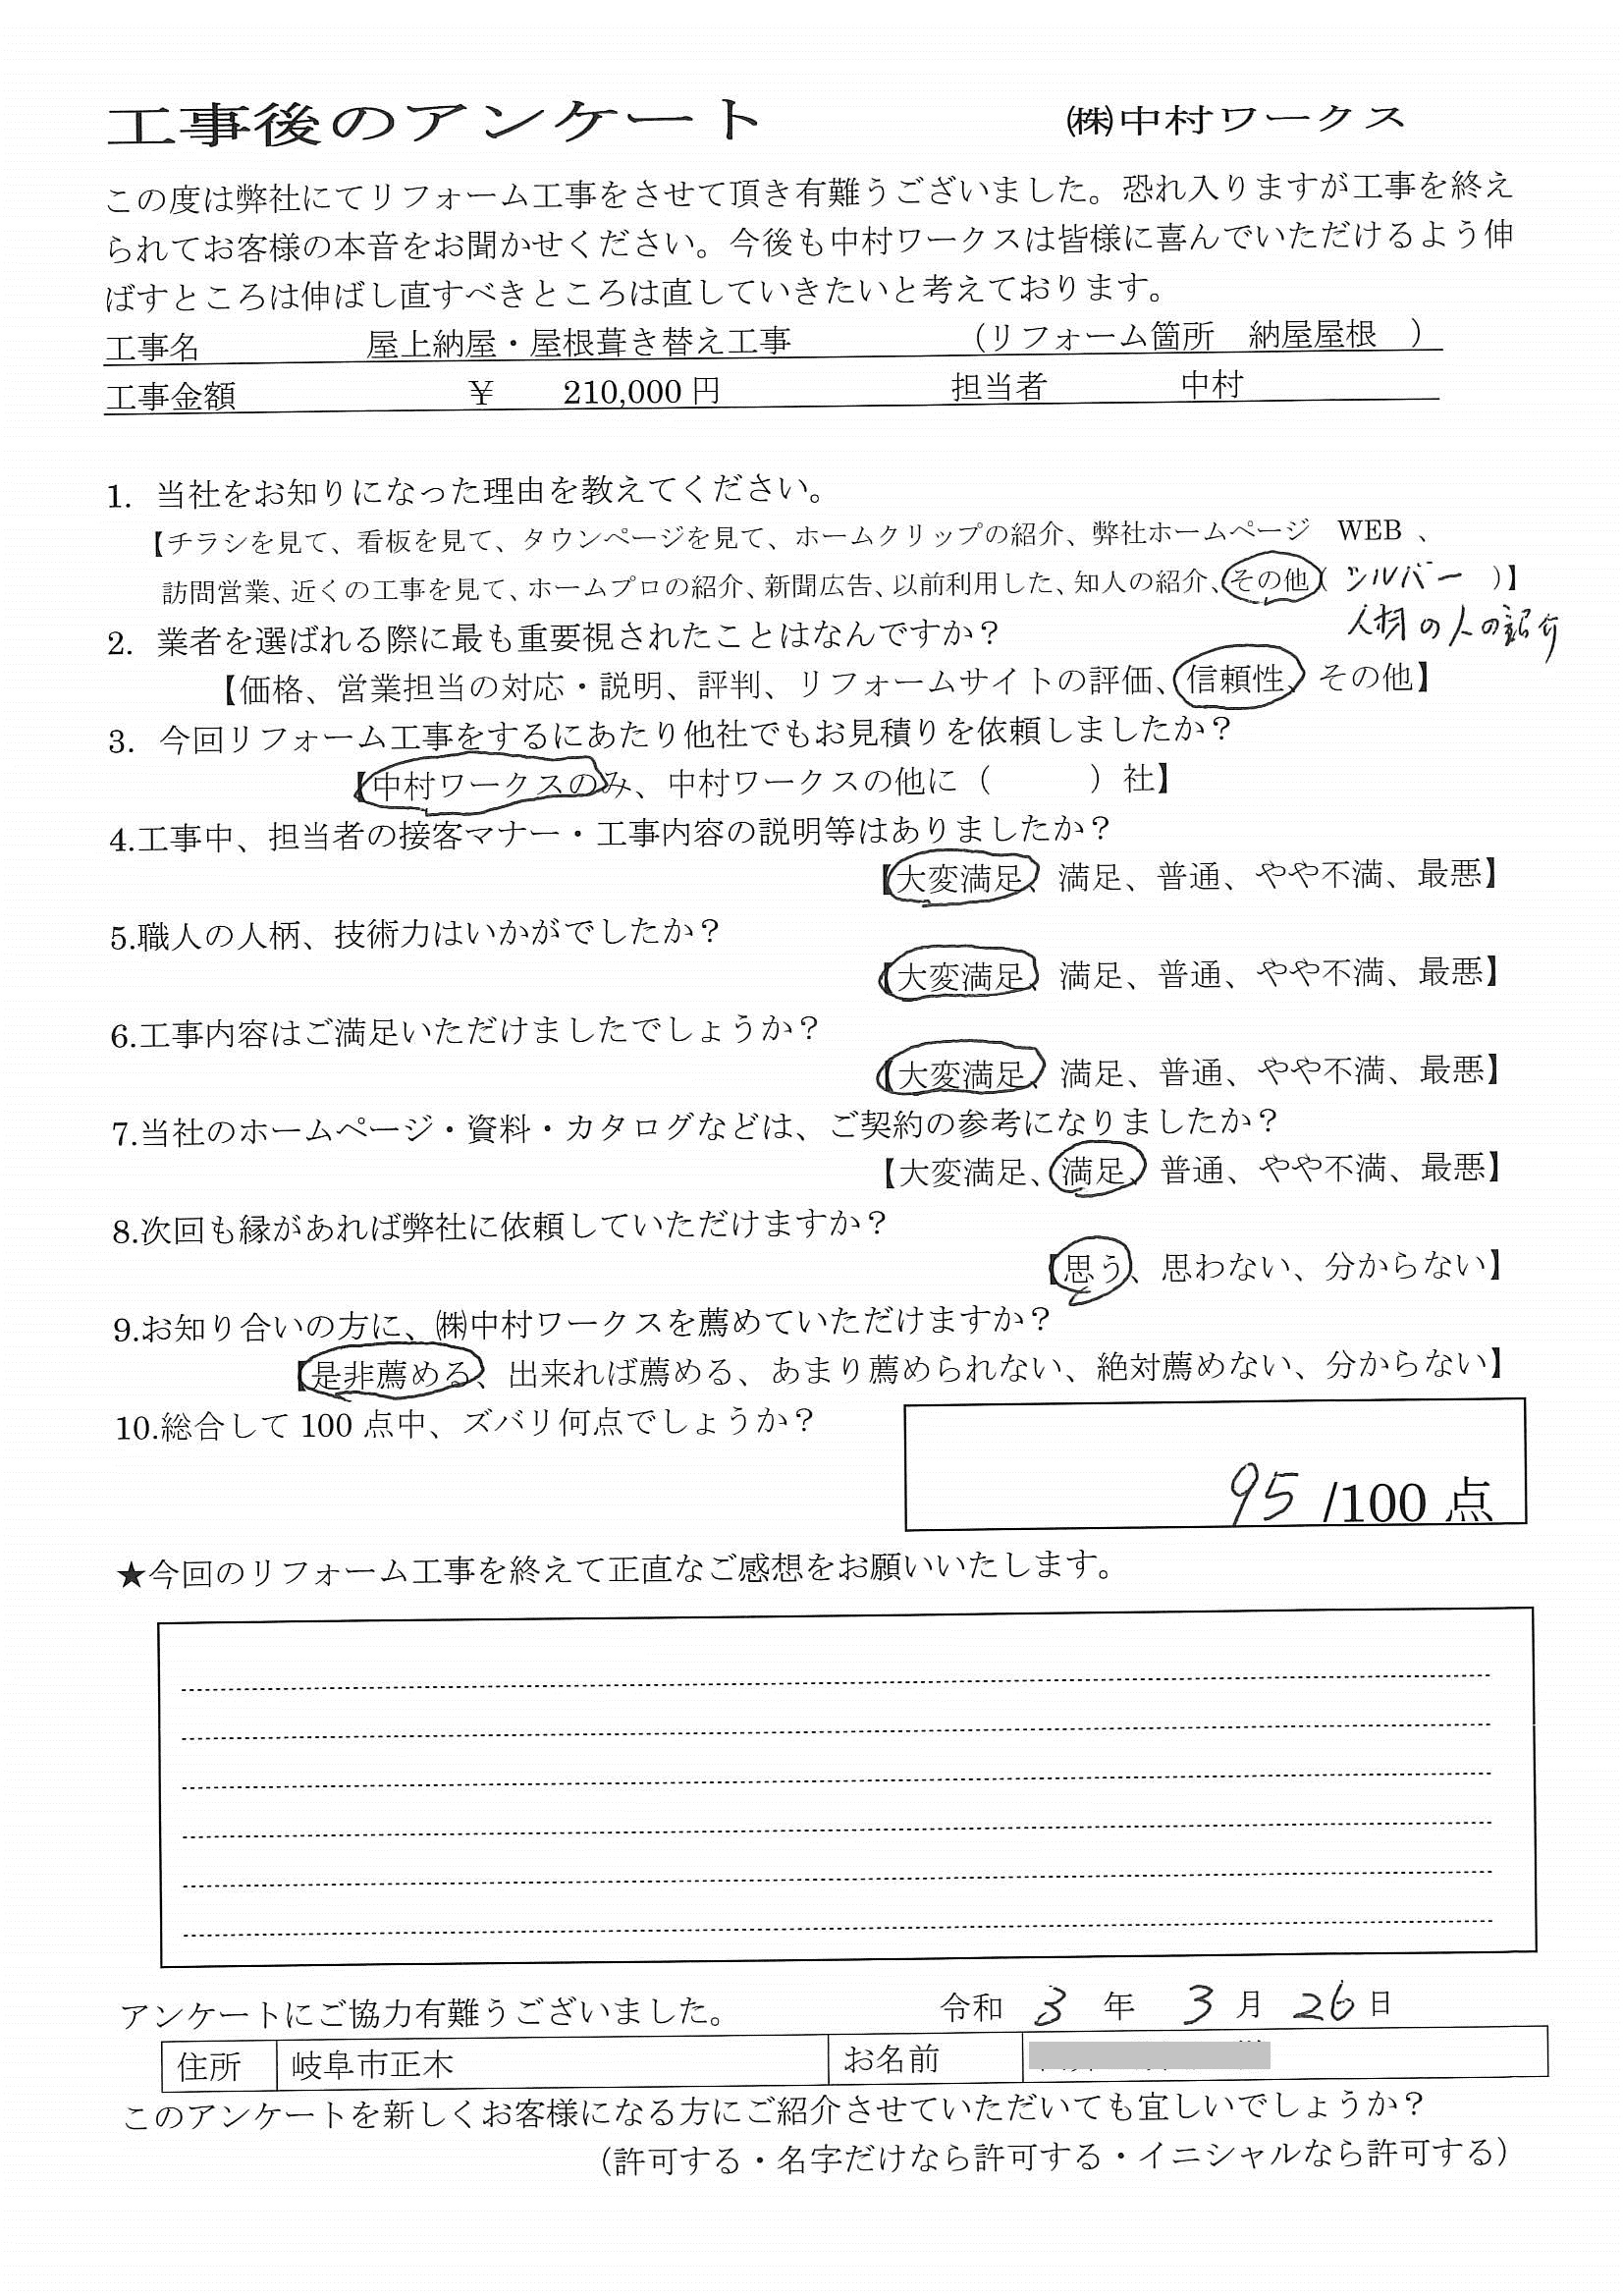 工事後のアンケート ㈱中村ワークス
この度は弊社にてリフォーム工事をさせて頂き有難うございました。恐れ入りますが工事を終え
られてお客様の本音をお聞かせください。今後も中村ワークスは皆様に喜んでいただけるよう伸
ばすところは伸ばし直すべきところは直していきたいと考えております。
工事名 屋上納屋・屋根葺き替え工事 （リフォーム箇所 納屋屋根 ）
工事金額 ￥ 210,000 円 担当者 中村
1. 当社をお知りになった理由を教えてください。
【チラシを見て、看板を見て、タウンページを見て、ホームクリップの紹介、弊社ホームページ WEB 、
訪問営業、近くの工事を見て、ホームプロの紹介、新聞広告、以前利用した、知人の紹介、その他（ シルバー ）】
人材の人の紹介
2. 業者を選ばれる際に最も重要視されたことはなんですか？
【価格、営業担当の対応・説明、評判、リフォームサイトの評価、信頼性、その他】
3. 今回リフォーム工事をするにあたり他社でもお見積りを依頼しましたか？
【中村ワークスのみ、中村ワークスの他に（ ）社】
4.工事中、担当者の接客マナー・工事内容の説明等はありましたか？
【大変満足、満足、普通、やや不満、最悪】
5.職人の人柄、技術力はいかがでしたか？
【大変満足、満足、普通、やや不満、最悪】
6.工事内容はご満足いただけましたでしょうか？
【大変満足、満足、普通、やや不満、最悪】
7.当社のホームページ・資料・カタログなどは、ご契約の参考になりましたか？
【大変満足、満足、普通、やや不満、最悪】
8.次回も縁があれば弊社に依頼していただけますか？
【思う、思わない、分からない】
9.お知り合いの方に、㈱中村ワークスを薦めていただけますか？
【是非薦める、出来れば薦める、あまり薦められない、絶対薦めない、分からない】
10.総合して 100 点中、ズバリ何点でしょうか？
95 /100 点
★今回のリフォーム工事を終えて正直なご感想をお願いいたします。
アンケートにご協力有難うございました。 令和 3 年 3 月 26 日
住所 岐阜市正木 お名前
このアンケートを新しくお客様になる方にご紹介させていただいても宜しいでしょうか？
（許可する・名字だけなら許可する・イニシャルなら許可する）